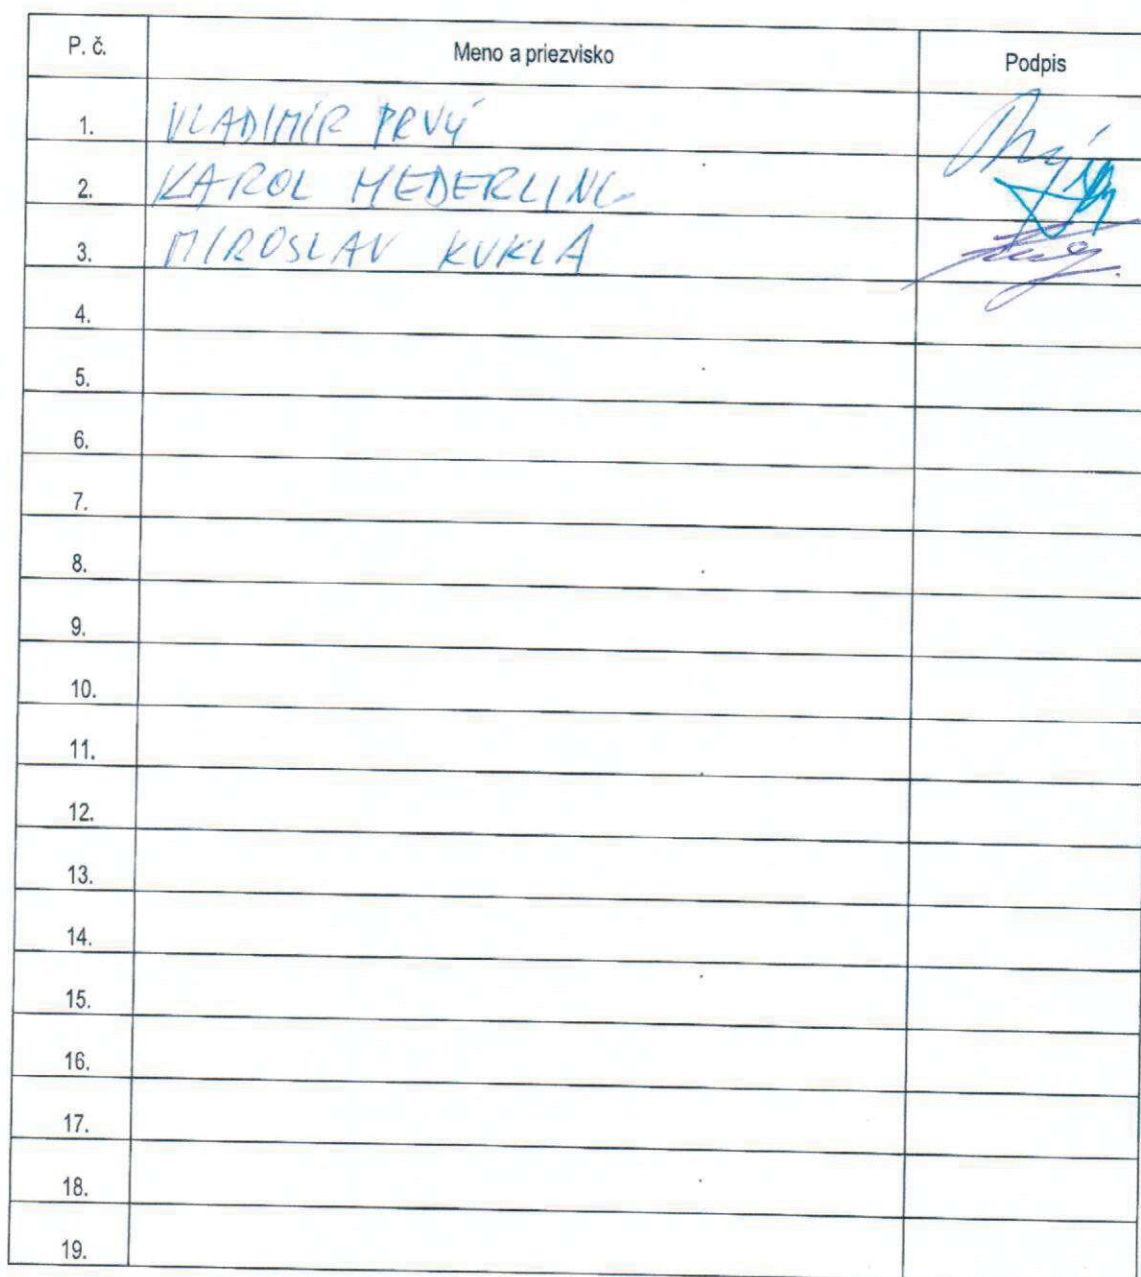 P. č. Meno a priezvisko Podpis
1. VLADIMÍR PRVÝ
2. KAROL MEDERLING
3. MIROSLAV KUKLA
4.
5.
6.
7.
8.
9.
10.
11.
12.
13.
14.
15.
16.
17.
18.
19.